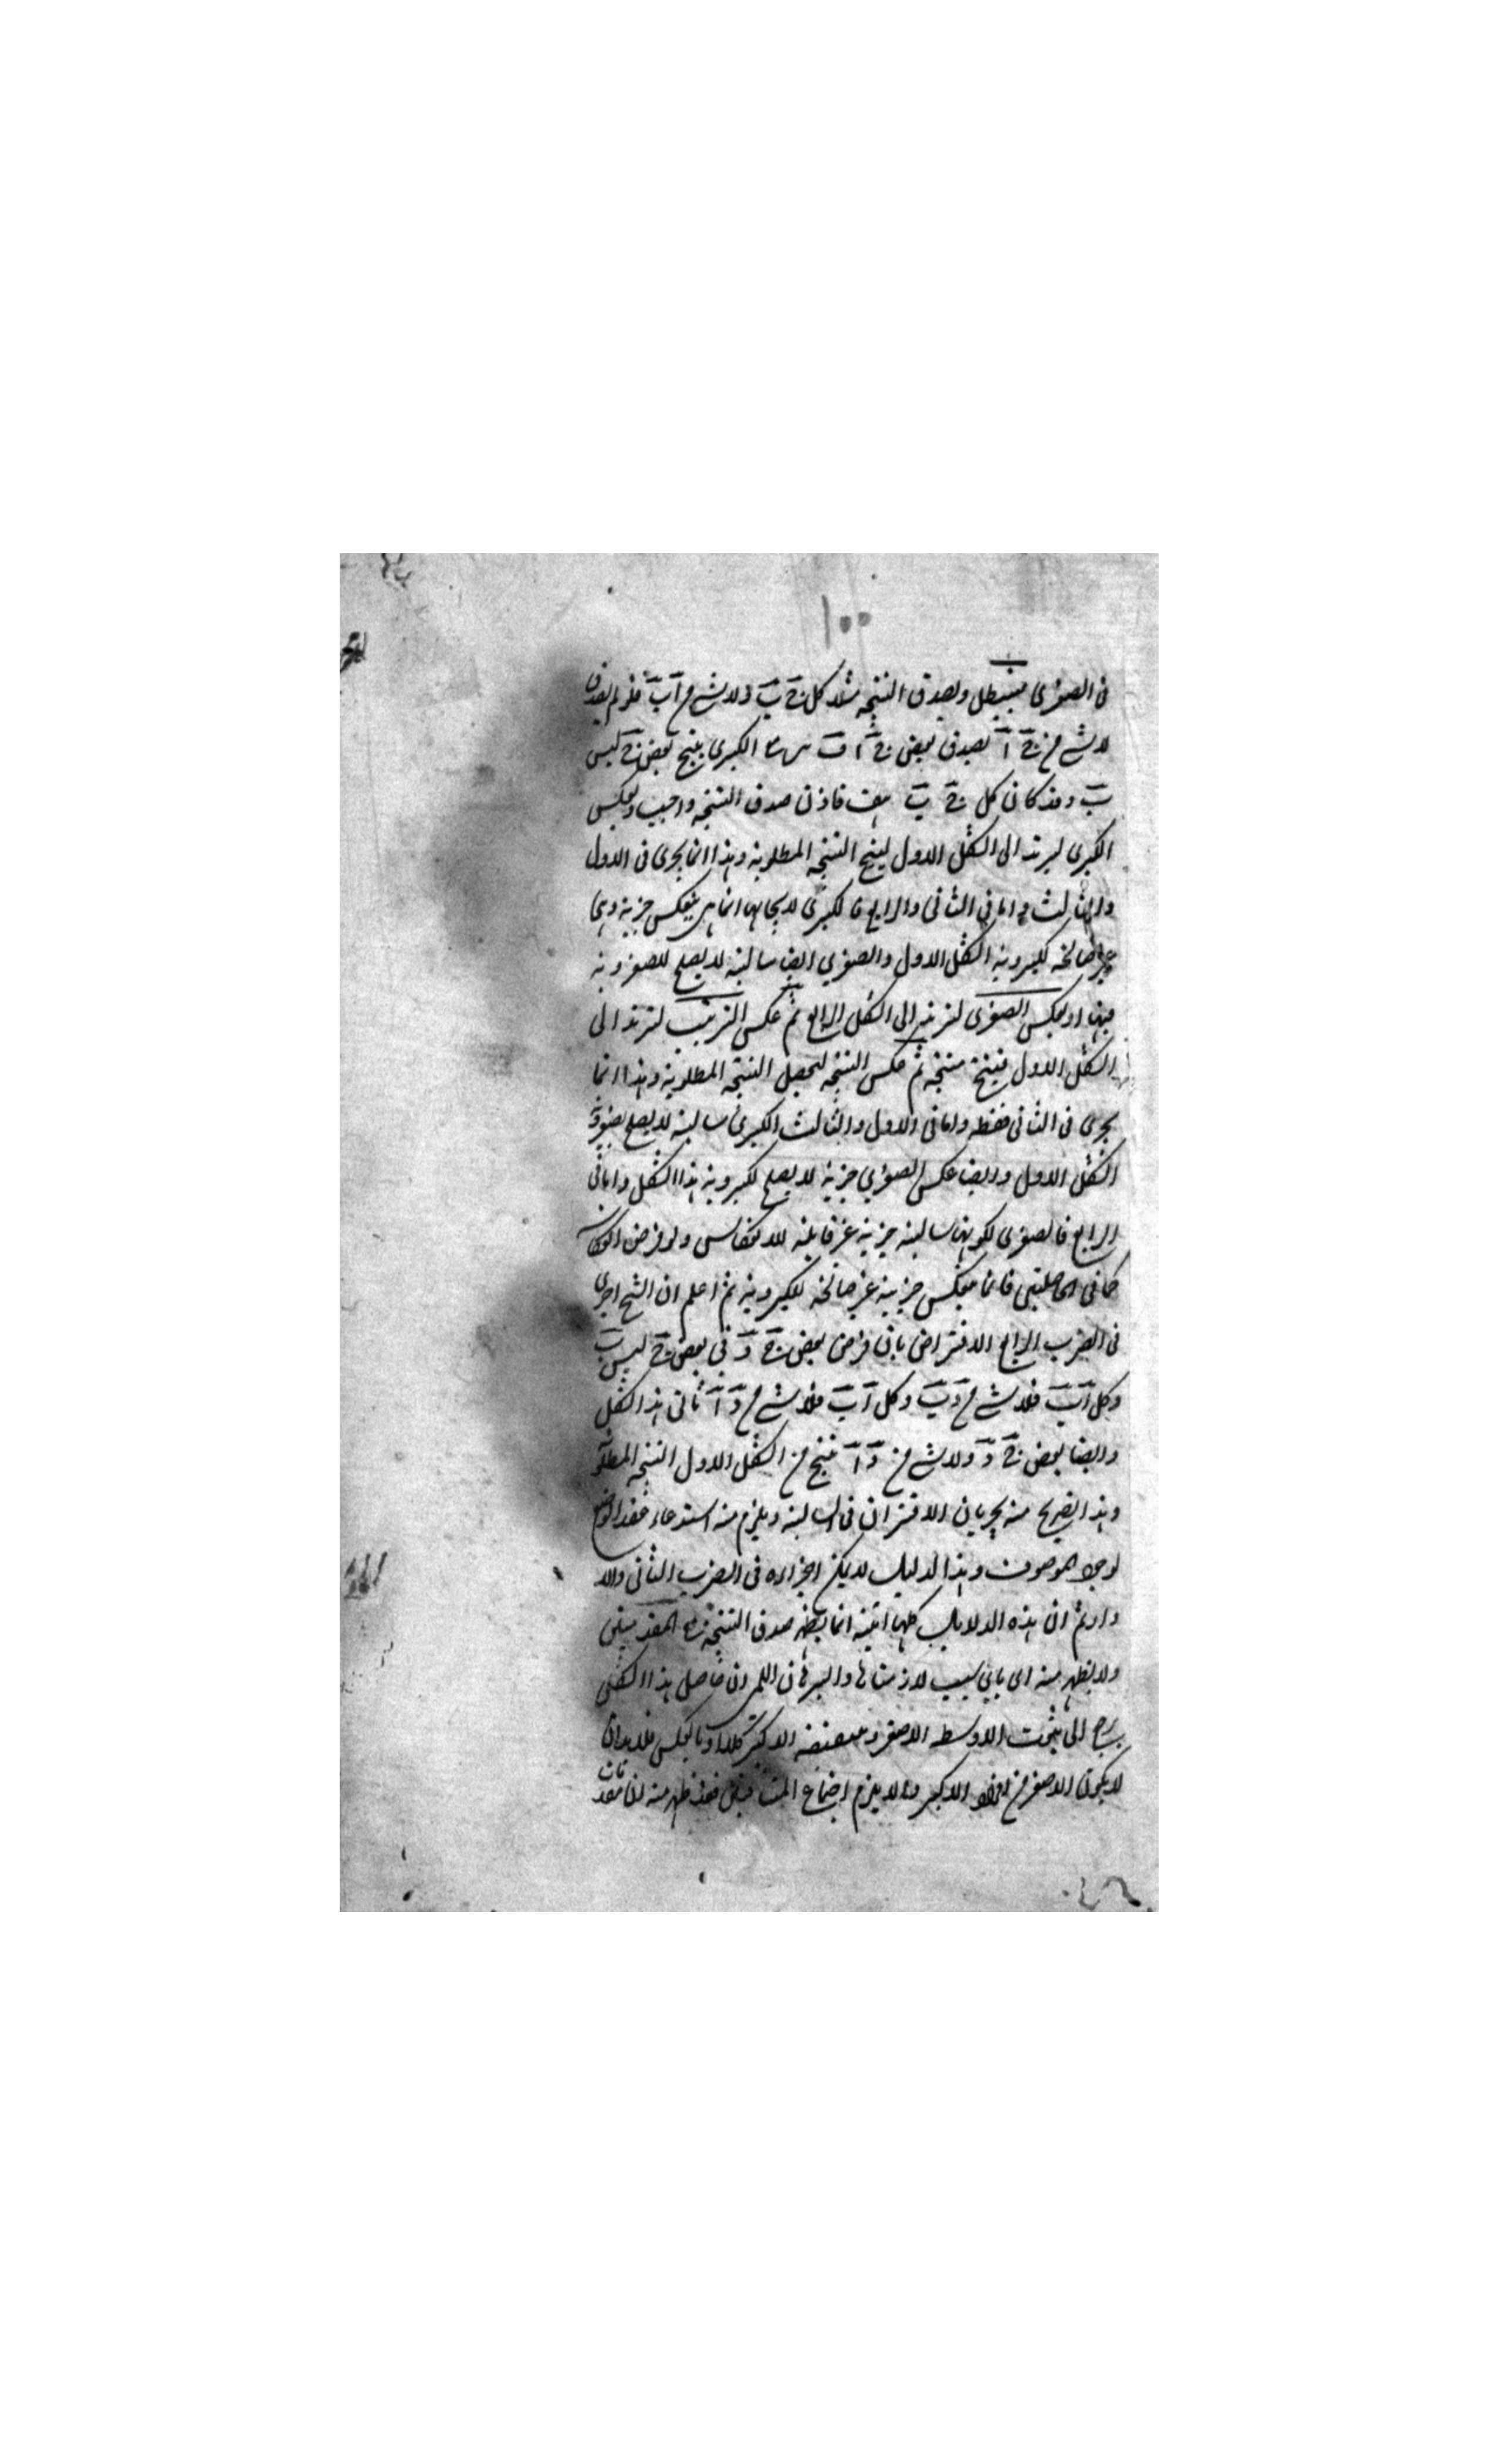 ١٠٠
فى الصغرى فيبطل ويصدق النتيجة مثلا كل ج ب ولا شى من آ ب فلو لم يصدق
لا شى من ج آ يصدق بعض ج آ الكبرى ينتج بعض ج ليس
ب وقد كان كل ج ب هف فاذن صدق النتيجة واجب وبعكس
الكبرى ليرتد الى الشكل الاول لينتج النتيجة المطلوبة وهذا انما يجرى فى الاول
والثالث واما فى الثانى والرابع فالكبرى لايجابها انما ينعكس جزئية وهى
غير صالحة لكبروية الشكل الاول والصغرى ايضا سالبة لا يصلح للصغروية
فيها او بعكس الصغرى لترتد الى الشكل الرابع ثم عكس الترتيب لترتد الى
الشكل الاول فينتج نتيجة ثم عكس النتيجة لتحصل النتيجة المطلوبة وهذا انما
يجرى فى الثانى فقط واما فى الاول والثالث الكبرى سالبة لا يصلح لصغروية
الشكل الاول وايضا عكس الصغرى جزئية لا يصلح لكبروية هذا الشكل واما فى
الرابع فالصغرى لكونها سالبة جزئية غير قابلة للانعكاس ولو فرض
كما فى الخاصتين فانما ينعكس جزئية غير صالحة لكبروية ثم اعلم ان الشيخ اجرى
فى الضرب الرابع الافتراض بان فرض بعض ج د فى بعض ج ليس ب
وكل آ ب فلا شى من د ب وكل آ ب فلا شى من د آ ثانى هذا الشكل
وايضا بعض ج د ولا شى من د آ ينتج من الشكل الاول النتيجة المطلوبة
وهذا تصريح منه بجريان الافتراض فى السالبة ويلزم منه استدعاء عقد الوضع
لوجود الموصوف وهذا الدليل لا يمكن اجراءه فى الضرب الثانى والا
دار ثم ان هذه الدلايل كلها انية انما يظهر صدق النتيجة
ولا يظهر منه اى بأى سبب لازمتاها والبرهان اللمى ان حاصل هذا الشكل
يرجع الى ثبوت الاوسط للاصغر ونقيضه للاكبر كلا او بالعكس فلا بد ان
لا يكون الاصغر من افراد الاكبر والا يلزم اجتماع المتنافيين فقد ظهر منه ان